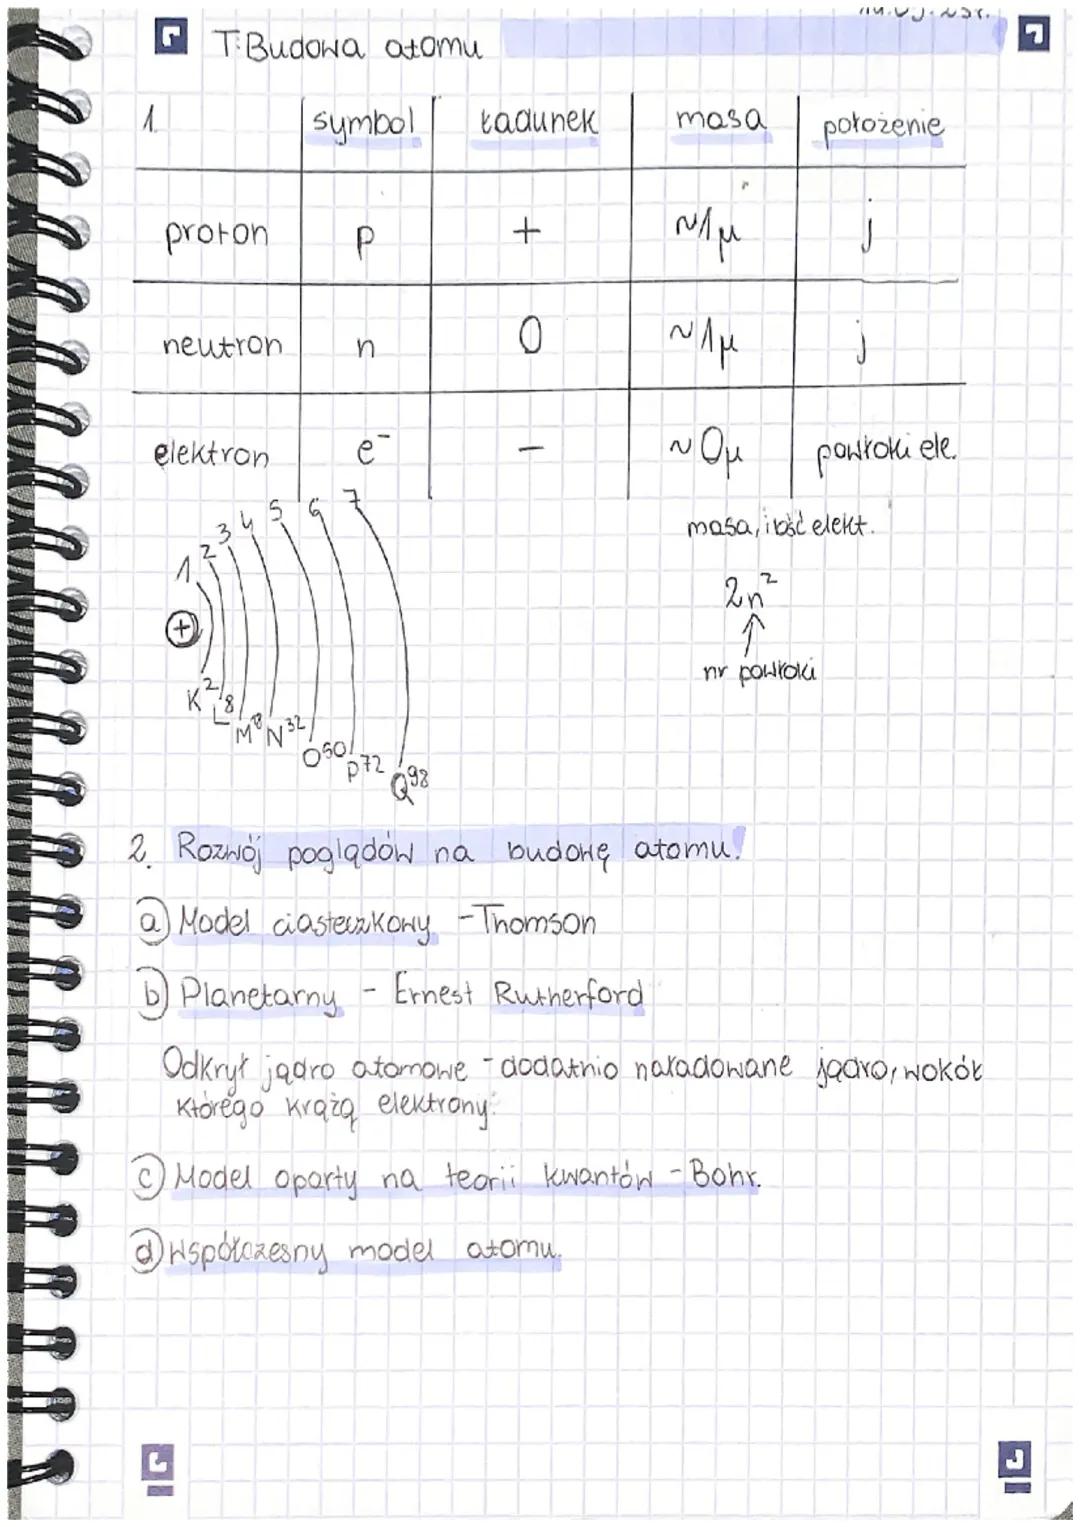 T: Budowa atomu
1. symbol ładunek masa położenie
proton p + ~1μ j
neutron n 0 ~1μ j
elektron e⁻ – ~0μ powłoki ele.
masa, ilość elekt.
2n²
nr powłoki
1 2 3 4 5 6 7
+
K² L⁸ M¹⁸ N³² O⁵⁰ P⁷² Q⁹⁸
2. Rozwój poglądów na budowę atomu.
a) Model ciasteczkowy - Thomson
b) Planetarny - Ernest Rutherford
Odkrył jądro atomowe - dodatnio naładowane jądro, wokół
którego krążą elektrony.
c) Model oparty na teorii kwantów - Bohr.
d) Współczesny model atomu.